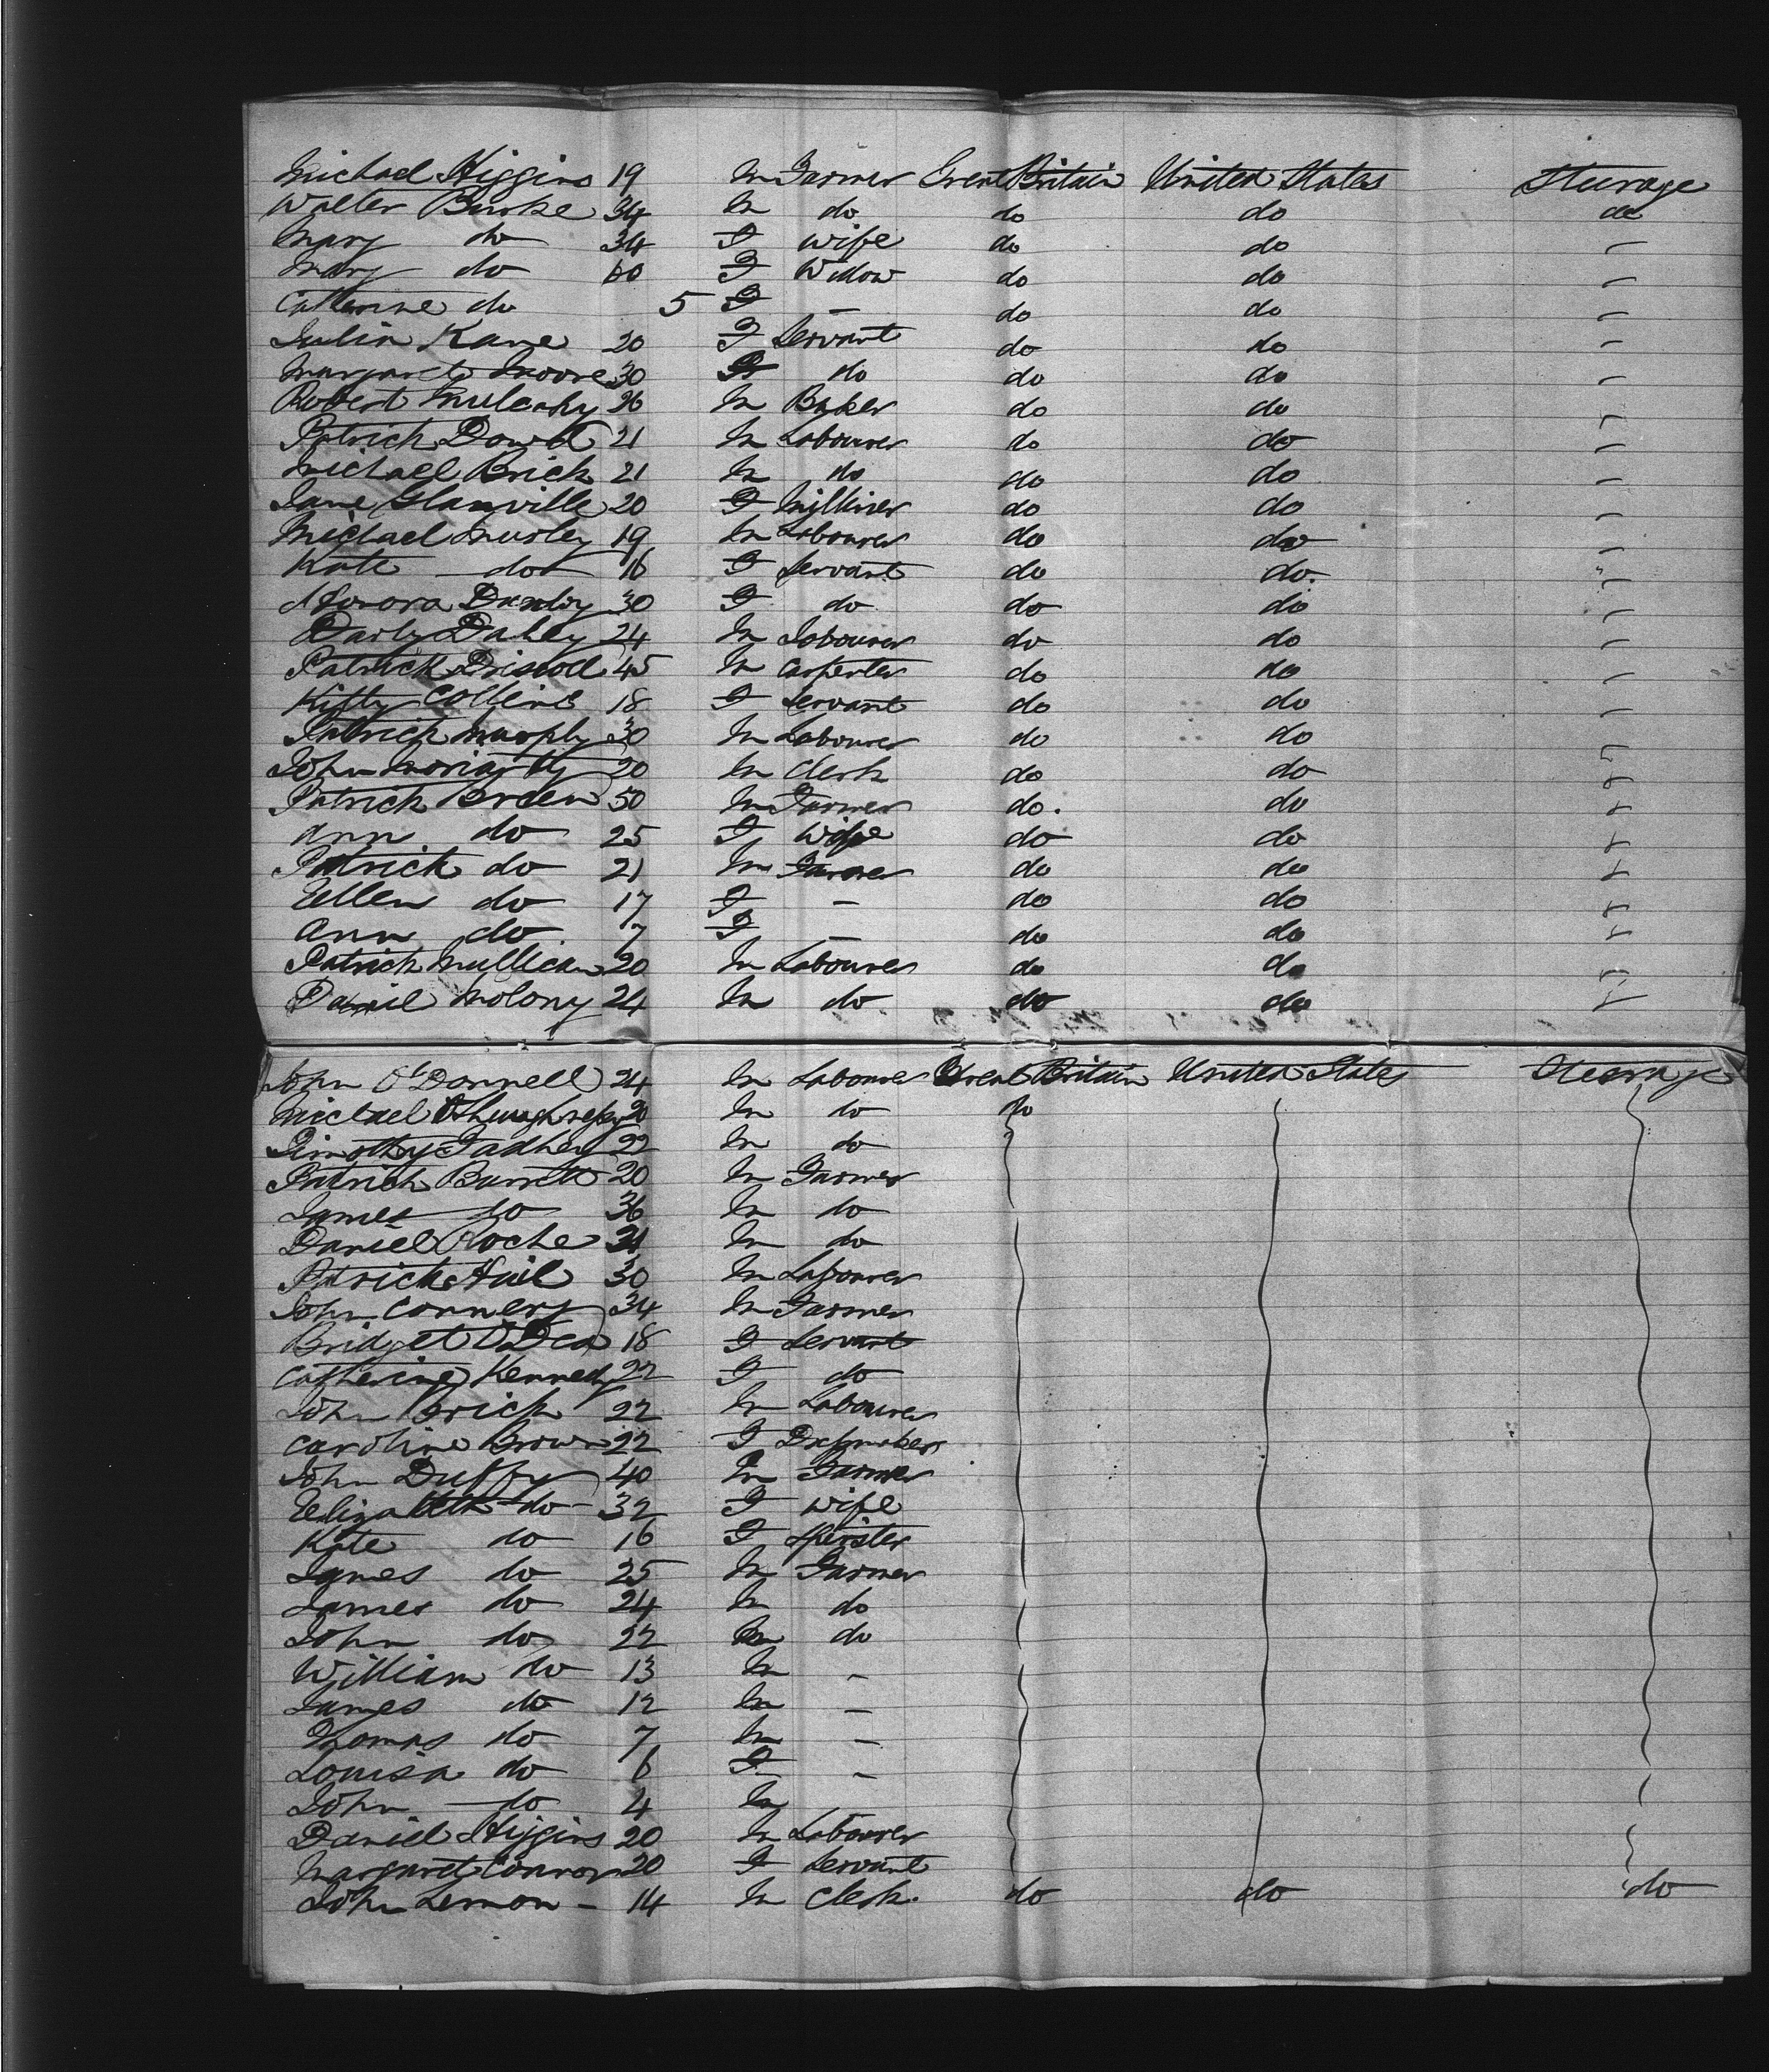 Michael Higgins 19 M Farmer Great Britain United States Steerage
Walter Burke 34 M do do do do
Mary do 34 F Wife do do –
Mary do 60 F Widow do do –
Catherine do 5 F – do do –
Julia Kane 20 F Servant do do –
Margaret Moore 30 F do do do –
Robert Mulcahy 26 M Baker do do –
Patrick Dowd 21 M Labourer do do –
Michael Brick 21 M do do do –
Jane Glanville 20 F Milliner do do –
Michael Murley 19 M Labourer do do –
Kate do 16 F Servant do do. –
Honora 30 F do do do –
Darly Dahey 24 M Labourer do do –
Patrick Driscoll 45 M Carpenter do do –
Kitty Collins 18 F Servant do do –
Patrick Murphy 30 M Labourer do do
John Moriarty 20 M Clerk do do
Patrick Breen 50 M Farmer do. do
Ann do 25 F Wife do do
Patrick do 21 M Farmer do do
Ellen do 17 F – do do
Ann do 7 F – do do
Patrick Mullican 20 M Labourer do do
Daniel Molony 24 M do do do
John O'Donnell 24 M Labourer Great Britain United States Steerage
Michael 20 M do do
Timothy 22 M do
Patrick Barrett 20 M Farmer
James do 36 M do
Daniel Roche 21 M do
Patrick Hail 30 M Labourer
John Connery 34 M Farmer
Bridget O'Dea 18 F Servant
Catherine Kennedy 22 F do
John Brick 22 M Labourer
Caroline Brown 22 F Dressmaker
John Duffy 40 M Farmer
Elizabeth do 32 F Wife
Kate do 16 F Spinster
James do 25 M Farmer
James do 24 M do
John do 22 M do
William do 13 M –
James do 12 M –
Thomas do 7 M –
Louisa do 6 F –
John do 4 M
Daniel Higgins 20 M Labourer
Margaret Connor 20 F Servant
John Lemon – 14 M Clerk. do do do